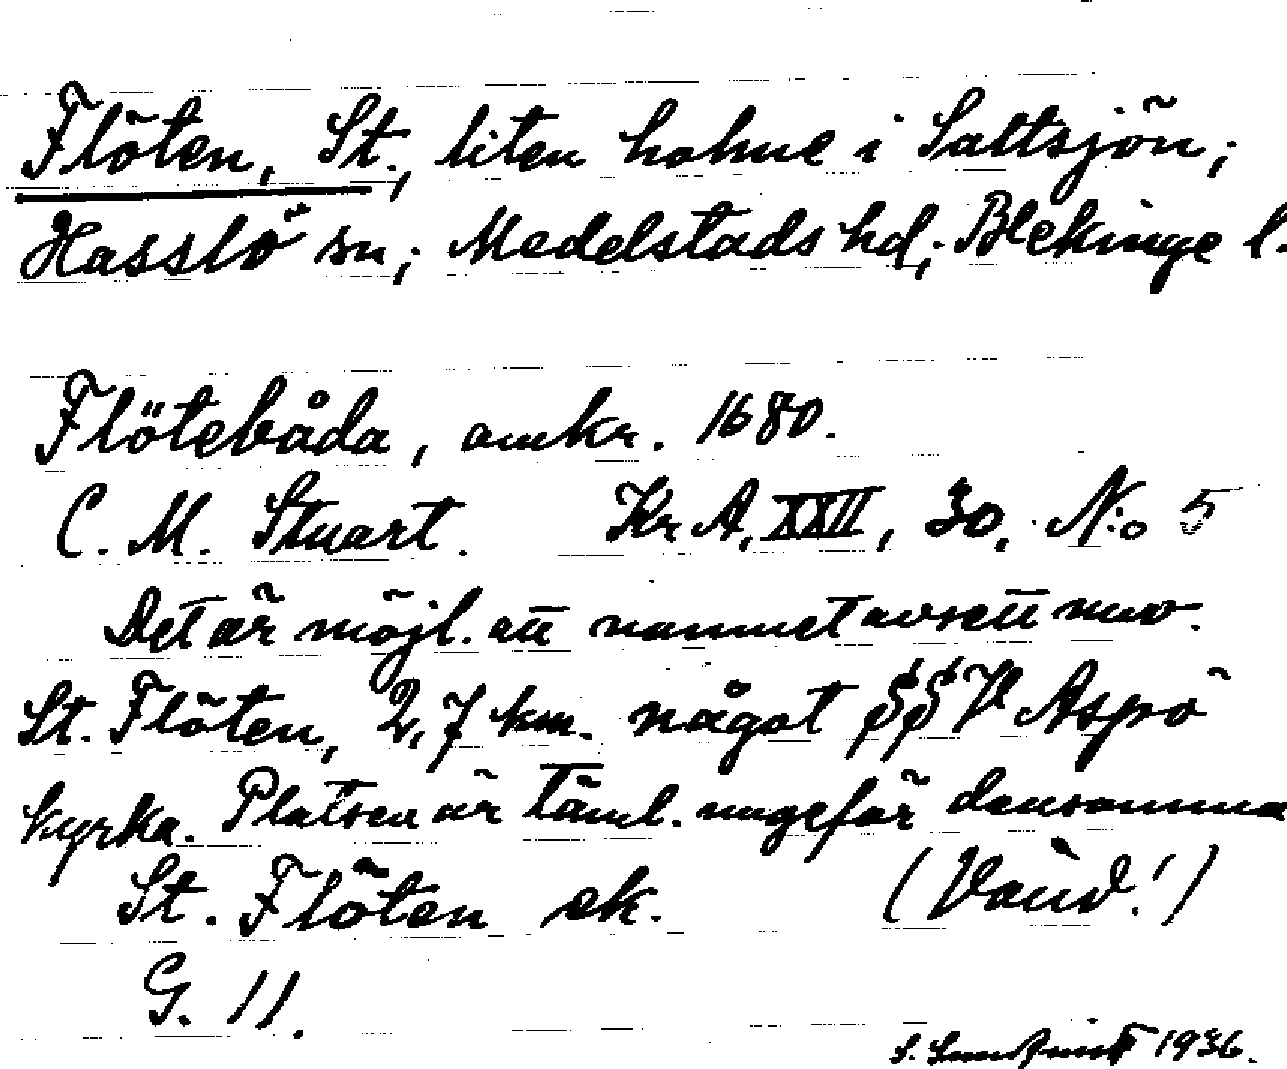 Flöten, St., liten holme i Saltsjön;
Hasslö sn; Medelstads hd; Blekinge l.
Flötebåda, omkr. 1680.
C. M. Stuart. Kr A, XXII, 30. N:o 5
Det är möjl. att namnet avsett nuv.
St. Flöten, 2,7 km. något S S V Aspö
kyrka. Platsen är täml. ungefär densamma
St. Flöten ek. (Vänd!)
G. 11.
S. 1936.